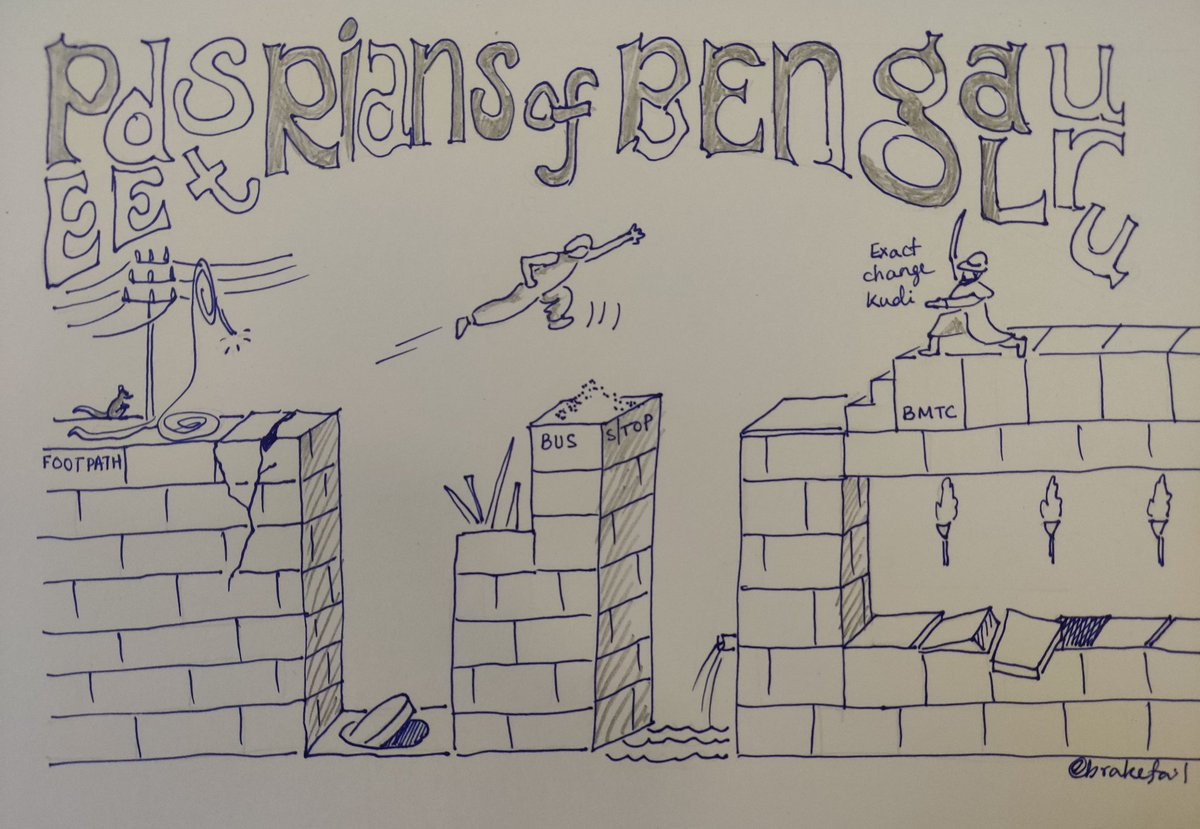 PEdEStRians of BENgaLuru
Exact
change
kudi
FOOTPATH
BUS STOP
BMTC
@brakefail